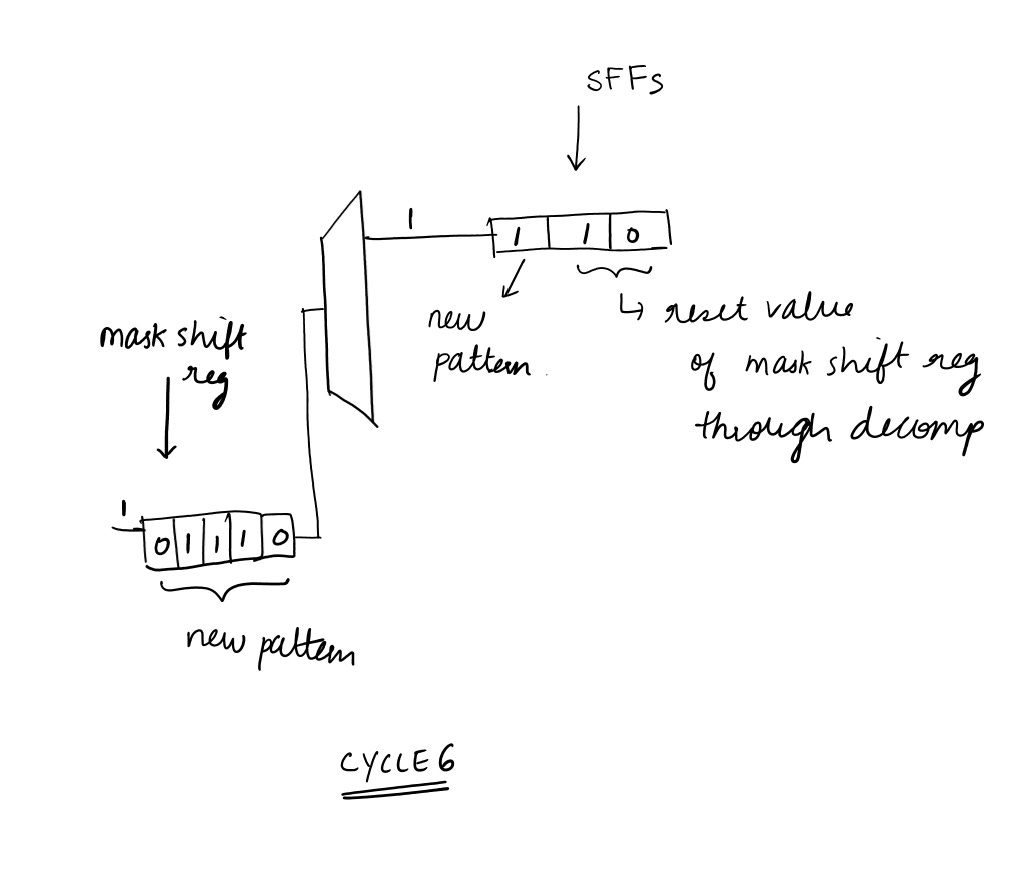 SFFs
1
1 1 0
new
pattern
reset value
of mask shift reg
through decomp
mask shift
reg
1
0 1 1 1 0
new pattern
CYCLE 6